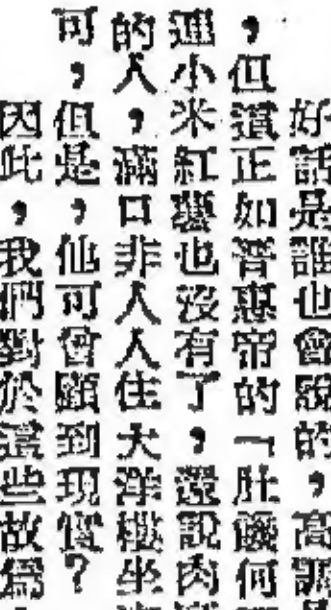 好話是誰也會說的，高調
，但這正如晉惠帝的「肚餓何
連小米紅薯也沒有了，還說肉
的人，滿口非人人住大洋樓坐
可，但是，他可曾顧到現實？
因此，我們對於這些故為